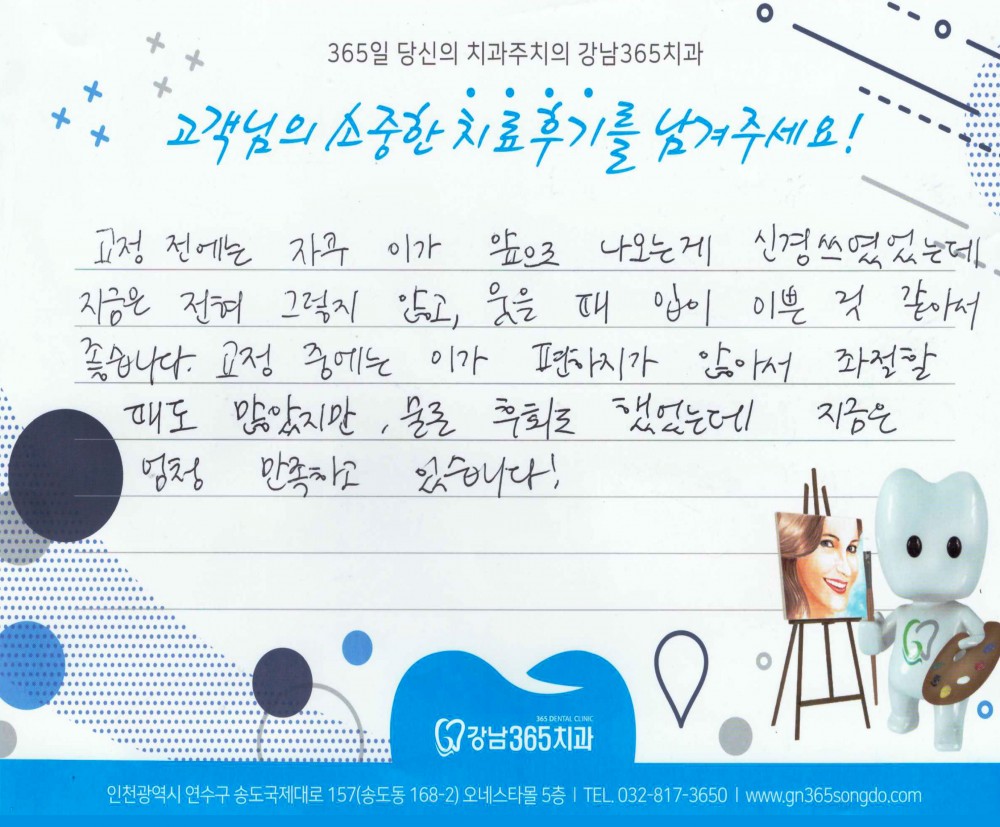 365일 당신의 치과주치의 강남365치과
고객님의 소중한 치료후기를 남겨주세요!
교정 전에는 자꾸 이가 앞으로 나오는게 신경쓰였었는데
지금은 전혀 그렇지 않고, 웃을 때 입이 이쁜 것 같아서
좋습니다. 교정 중에는 이가 편하지가 않아서 좌절할
때도 많았지만, 물론 후회도 했었는데 지금은
엄청 만족하고 있습니다!
365 DENTAL CLINIC
강남365치과
인천광역시 연수구 송도국제대로 157(송도동 168-2) 오네스타몰 5층 I TEL. 032-817-3650 I www.gn365songdo.com